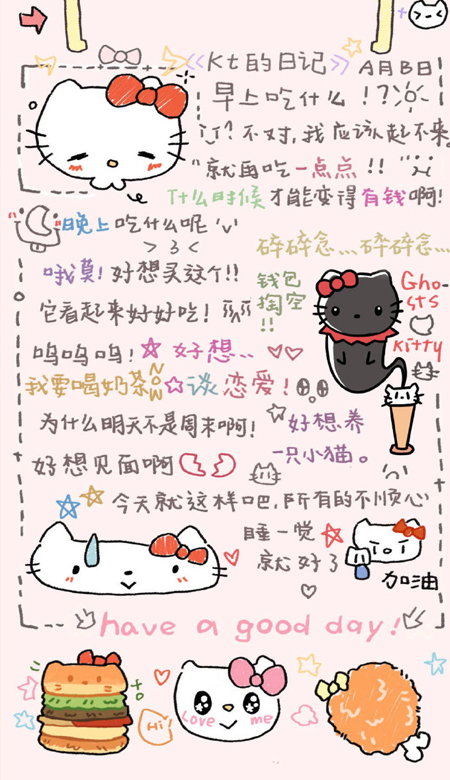 《Kt的日记》 A月B日
早上吃什么！？
？不对，我应该起不来。
"就再吃一点点！！"
什么时候才能变得有钱啊！
晚上吃什么呢'v'
> 3 <
碎碎念、、、碎碎念、、、
哦莫！好想买这个！！
钱包
掏空
!!
它看起来好好吃！
Gho-
sts
Kitty
呜呜呜！☆好想、、
我要喝奶茶NOW☆谈恋爱！
为什么明天不是周末啊！
☆好想养
一只小猫。
好想见面啊
今天就这样吧，所有的不顺心
睡一觉
就好了
加油
have a good day!
Hi!
Love me